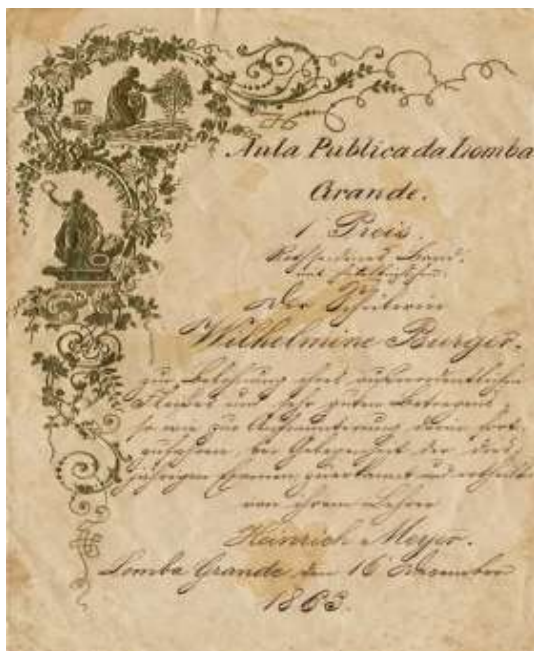 Aula Publica da Lomba
Grande.
1 Preis.
Band.
Der Schülerin
Wilhelmine Burger.
zur Belohnung ihres außerordentlichen
Fleißes und sehr guten Betragens
so wie zur Aufmunterung darin fort-
zufahren, bei Gelegenheit der dies-
jährigen Examen zuerkannt und ertheilt
von ihrem Lehrer
Heinrich Meyer.
Lomba Grande den 16 Dezember
1863.